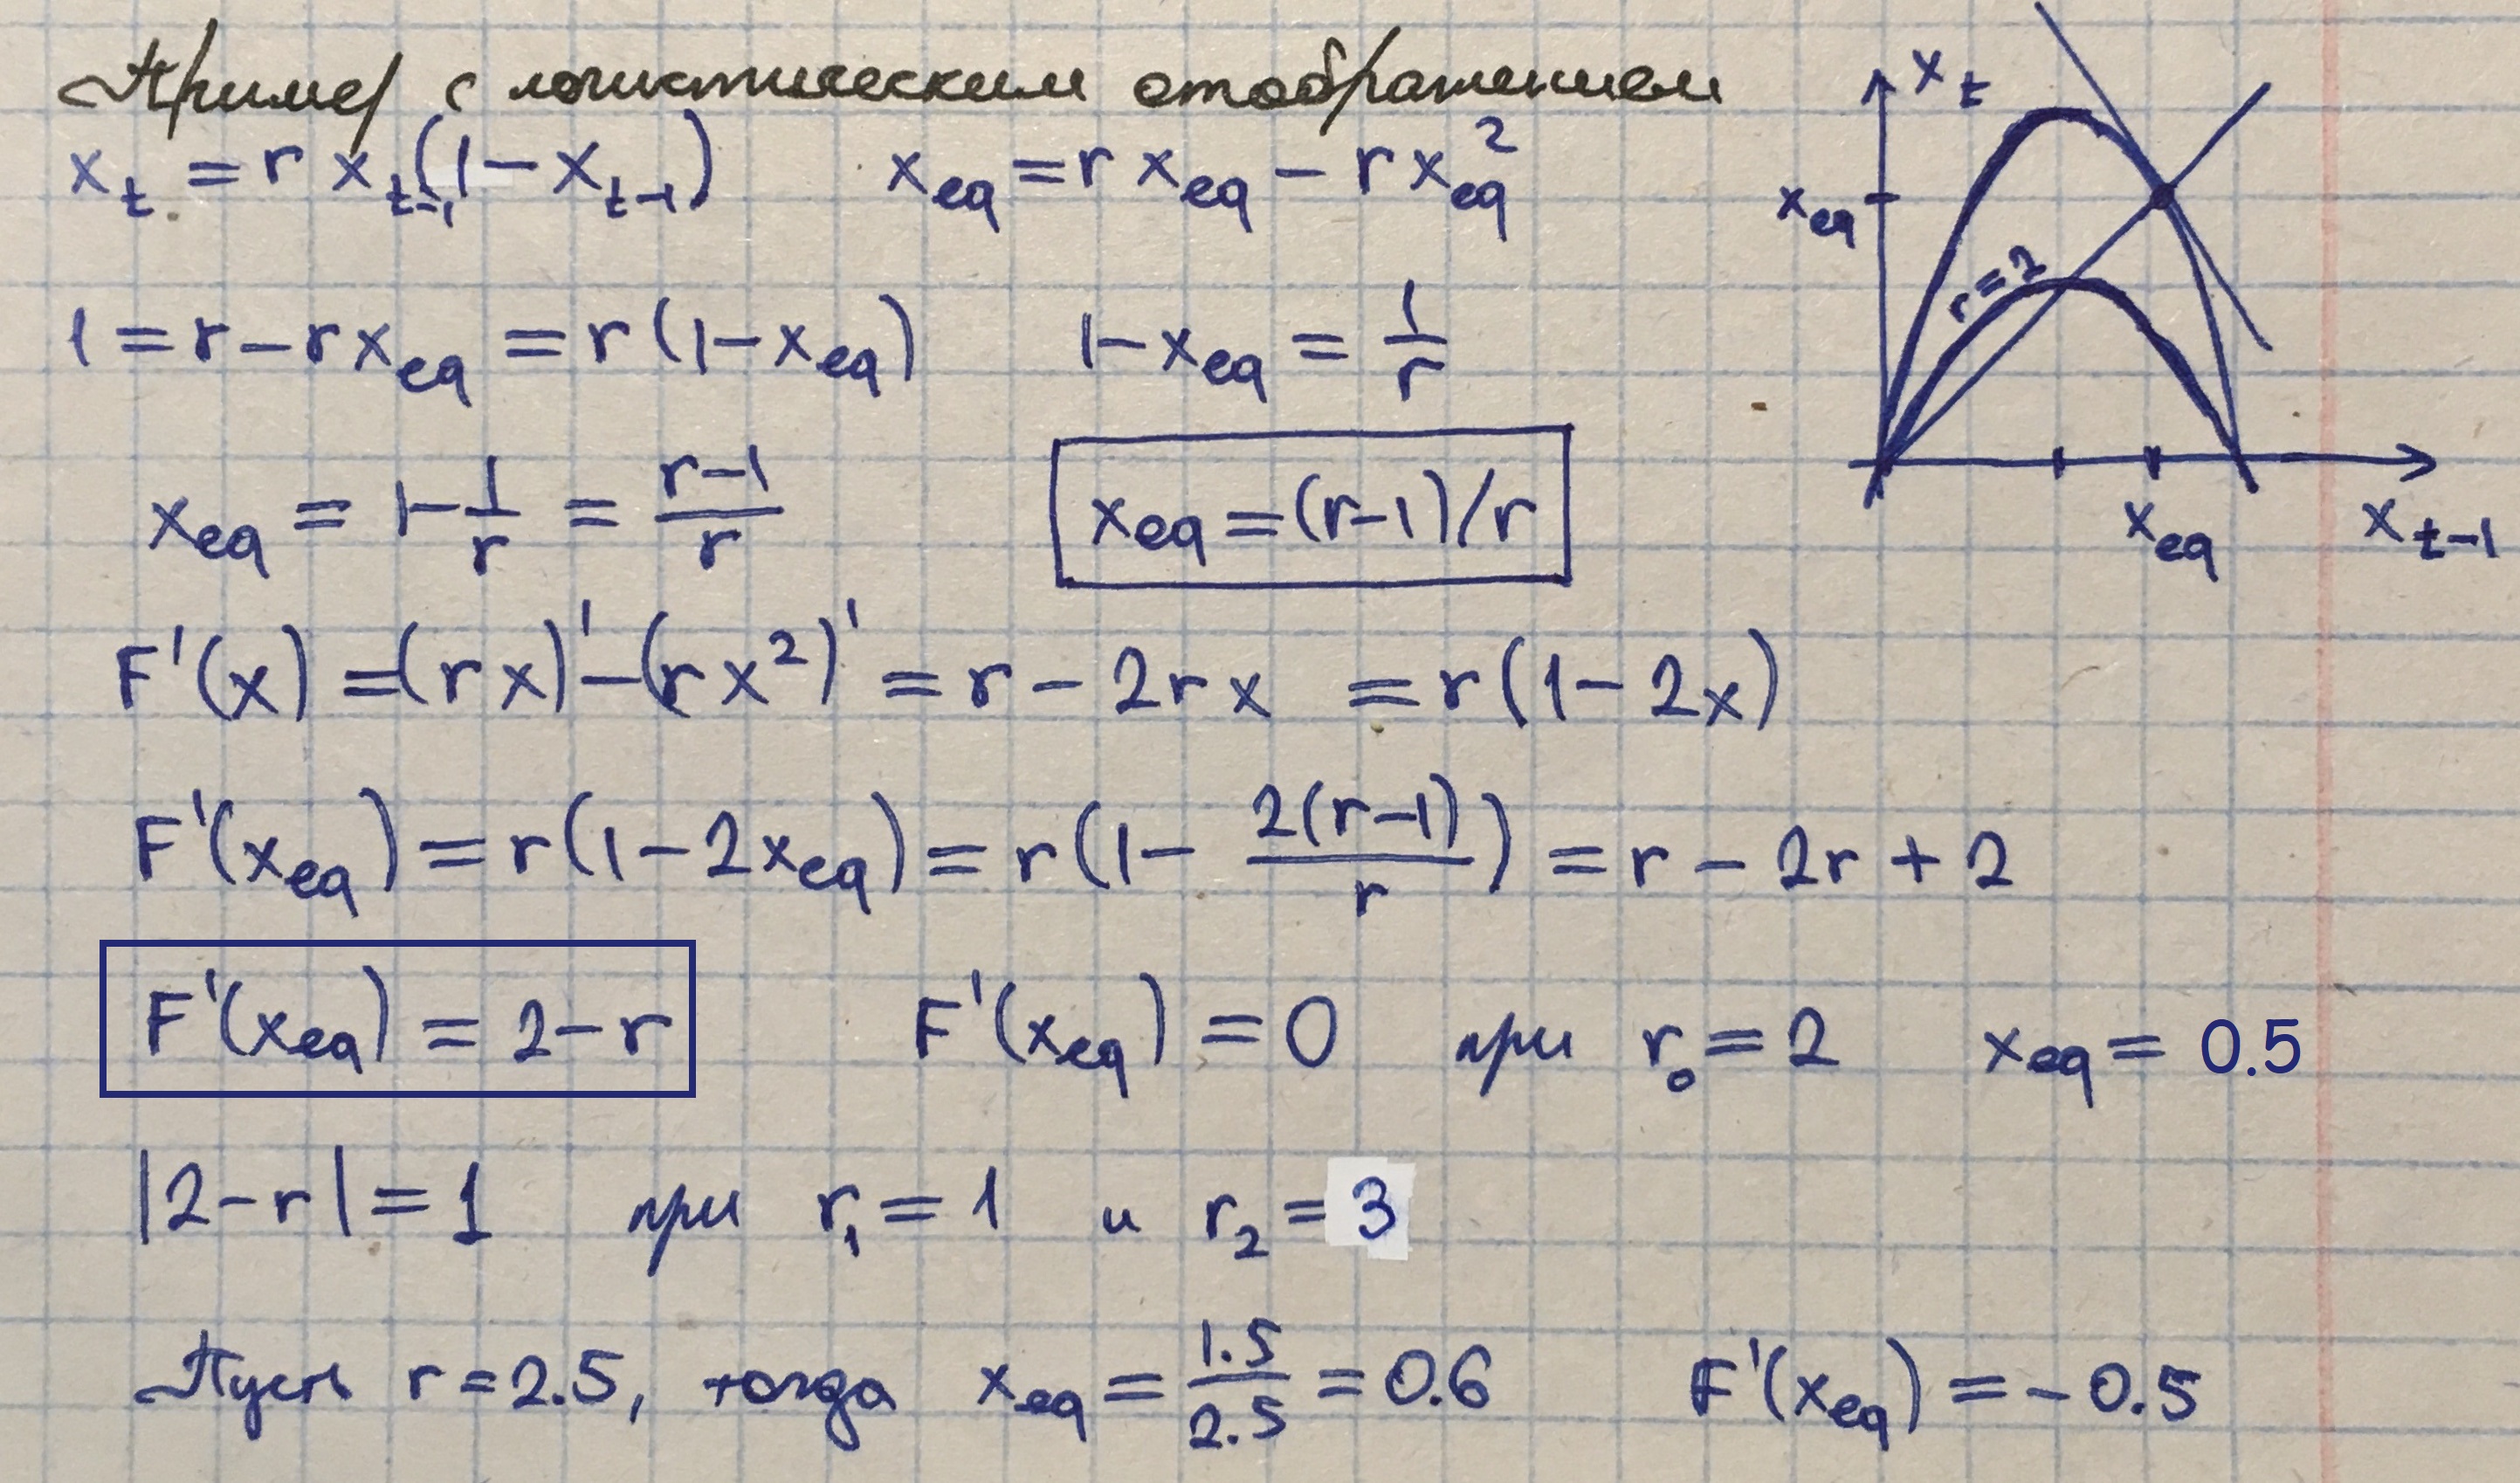 Пример с логистическим отображением
x_t = r x_{t-1}(1-x_{t-1})    x_eq = r x_eq - r x_eq²
1 = r - r x_eq = r(1-x_eq)    1-x_eq = 1/r
x_eq = 1 - 1/r = (r-1)/r    x_eq = (r-1)/r
F'(x) = (rx)' - (rx²)' = r - 2rx = r(1-2x)
F'(x_eq) = r(1-2x_eq) = r(1 - 2(r-1)/r) = r - 2r + 2
F'(x_eq) = 2-r    F'(x_eq) = 0 при r₀ = 2    x_eq = 0.5
|2-r| = 1 при r₁ = 1 и r₂ = 3
Пусть r = 2.5, тогда x_eq = 1.5/2.5 = 0.6    F'(x_eq) = -0.5
x_t
x_eq
r=2
x_eq
x_{t-1}